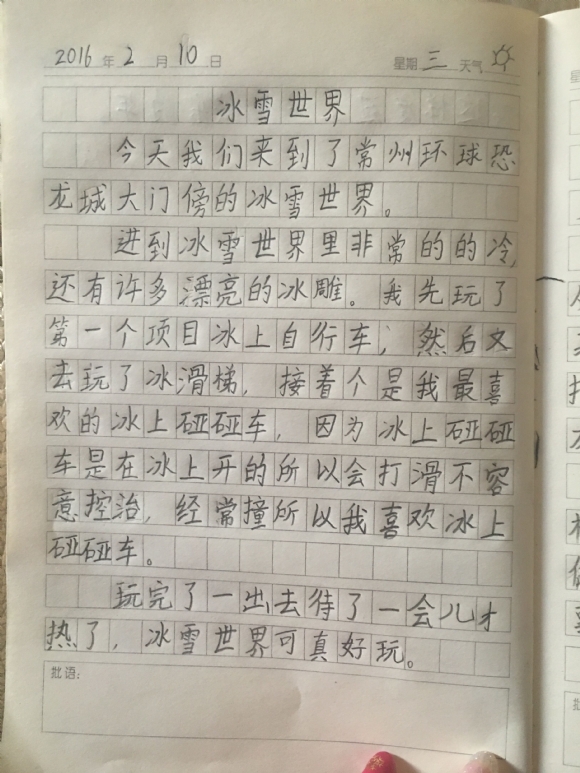 2016年2月10日 星期三 天气
冰雪世界
今天我们来到了常州环球恐
龙城大门傍的冰雪世界。
进到冰雪世界里非常的的冷,
还有许多漂亮的冰雕。我先玩了
第一个项目冰上自行车,然后又
去玩了冰滑梯,接着个是我最喜
欢的冰上碰碰车,因为冰上碰碰
车是在冰上开的所以会打滑不容
意控治,经常撞所以我喜欢冰上
碰碰车。
玩完了一出去待了一会儿才
热了,冰雪世界可真好玩。
批语: